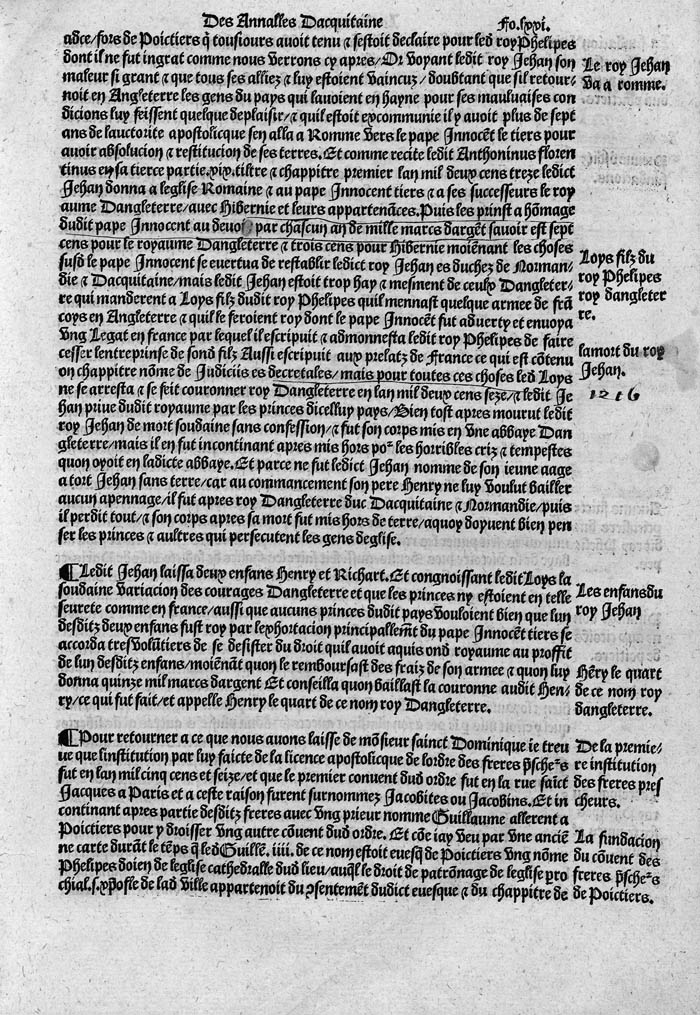 Des Annalles Dacquitaine
Fo.lxxi.
adce/fors de Poictiers q̃ tousiours auoit tenu ⁊ sestoit declaire pour led roy Phelipes
dont il ne fut ingrat comme nous verrons cy apres/Or voyant ledit roy Jehan son
maleur si grant ⁊ que tous ses alliez ⁊ luy estoient vaincuz/ doubtant que sil retour-
noit en Angleterre les gens du pays qui lauoient en hayne pour ses mauluaises con
dicions luy feissent quelque deplaisir/⁊ quil estoit excommunie il y auoit plus de sept
ans de lauctorite apostolicque sen alla a Romme vers le pape Innocẽt le tiers pour
auoir absolucion ⁊ restitucion de ses terres. Et comme recite ledit Anthoninus floren
tinus en sa tierce partie.xix.tiltre ⁊ chappitre premier lan mil deux cens treze ledict
Jehan donna a leglise Romaine ⁊ au pape Innocent tiers ⁊ a ses successeurs le roy
aume Dangleterre/auec Hibernie et leurs appartenãces. Puis les prinst a hõmage
dudit pape Innocent au deuoi par chascun an de mille marcs dargẽt sauoir est sept
cens pour le royaume Dangleterre ⁊ trois cens pour Hibernie moiẽnant les choses
susd le pape Innocent se euertua de restablir ledict roy Jehan es duchez de Norman-
die ⁊ Dacquitaine/mais ledit Jehan estoit trop hay ⁊ mesment de ceulx Dangleter-
re qui manderent a Loys filz dudit roy Phelipes quil mennast quelque armee de frã
coys en Angleterre ⁊ quil le feroient roy dont le pape Innocẽt fut aduerty et enuoya
vng Legat en france par lequel il escripuit ⁊ admonnesta ledit roy Phelipes de faire
cesser lentreprinse de sond filz Aussi escripuit aux prelatz de France ce qui est cõtenu
on chappitre nõme de Judiciis es decretales/mais pour toutes ces choses led Loys
ne se arresta ⁊ se feit couronner roy Dangleterre en lan mil deux cens seze/⁊ ledit Je
han priue dudit royaume par les princes dicelluy pays/Bien tost apres mourut ledit
roy Jehan de mort soudaine sans confession/⁊ fut son corps mis en vne abbaye Dan
gleterre/mais il en fut incontinant apres mis hors poᷣ les horribles criz ⁊ tempestes
quon oyoit en ladicte abbaye. Et parce ne fut ledict Jehan nomme de son ieune aage
a tort Jehan sans terre/car au commancement son pere Henry ne luy voulut bailler
aucun apennage/il fut apres roy Dangleterre duc Dacquitaine ⁊ Normandie/puis
il perdit tout/⁊ son corps apres sa mort fut mis hors de terre/aquoy doyuent bien pen
ser les princes ⁊ aultres qui persecutent les gens deglise.
Le roy Jehan
va a romme.
Loys filz du
roy Phelipes
roy dangleter
re.
la mort du roy
Jehan.
1216
¶Ledit Jehan laissa deux enfans Henry et Richart. Et congnoissant ledit Loys la
soudaine variacion des courages Dangleterre et que les princes ny estoient en telle
seurete comme en france/aussi que aucuns princes dudit pays vouloient bien que lun
desditz deux enfans fust roy par lexhortacion principallemẽt du pape Innocẽt tiers se
accorda tresvolũtiers de se desister du droit quil auoit aquis ond royaume au proffit
de lun desditz enfans/moiẽnãt quon le remboursast des fraiz de son armee ⁊ quon luy
donna quinze mil marcs dargent Et conseilla quon baillast la couronne audit Hen-
ry/ce qui fut fait/et appelle Henry le quart de ce nom roy Dangleterre.
Les enfans du
roy Jehan
Hẽry le quart
de ce nom roy
dangleterre.
¶Pour retourner a ce que nous auons laisse de mõsieur sainct Dominique ie treu
ue que linstitution par luy faicte de la licence apostolicque de lordre des freres p̃scheᷣs
fut en lan mil cinq cens et seize/et que le premier conuent dud ordre fut en la rue saĩct
Jacques a Paris et a ceste raison furent surnommez Jacobites ou Jacobins. Et in
continant apres partie desditz freres auec vng prieur nomme Guillaume allerent a
Poictiers pour y droisser vng autre cõuent dud ordre. Et cõe iay veu par vne anciẽ
ne carte durãt le tẽps q̃ led Guillẽ. iiii. de ce nom estoit euesq̃ de Poictiers vng nõme
Phelipes doien de leglise cathedralle dud lieu/auq̃l le droit de patrõnage de leglise pro
chial. s. xp̃ofle de lad ville appartenoit du ↄsentemẽt dudict euesque ⁊ du chappitre de
De la premie-
re institution
des freres pres
cheurs.
La fundacion
du cõuent des
freres p̃scheᷣs
de Poictiers.